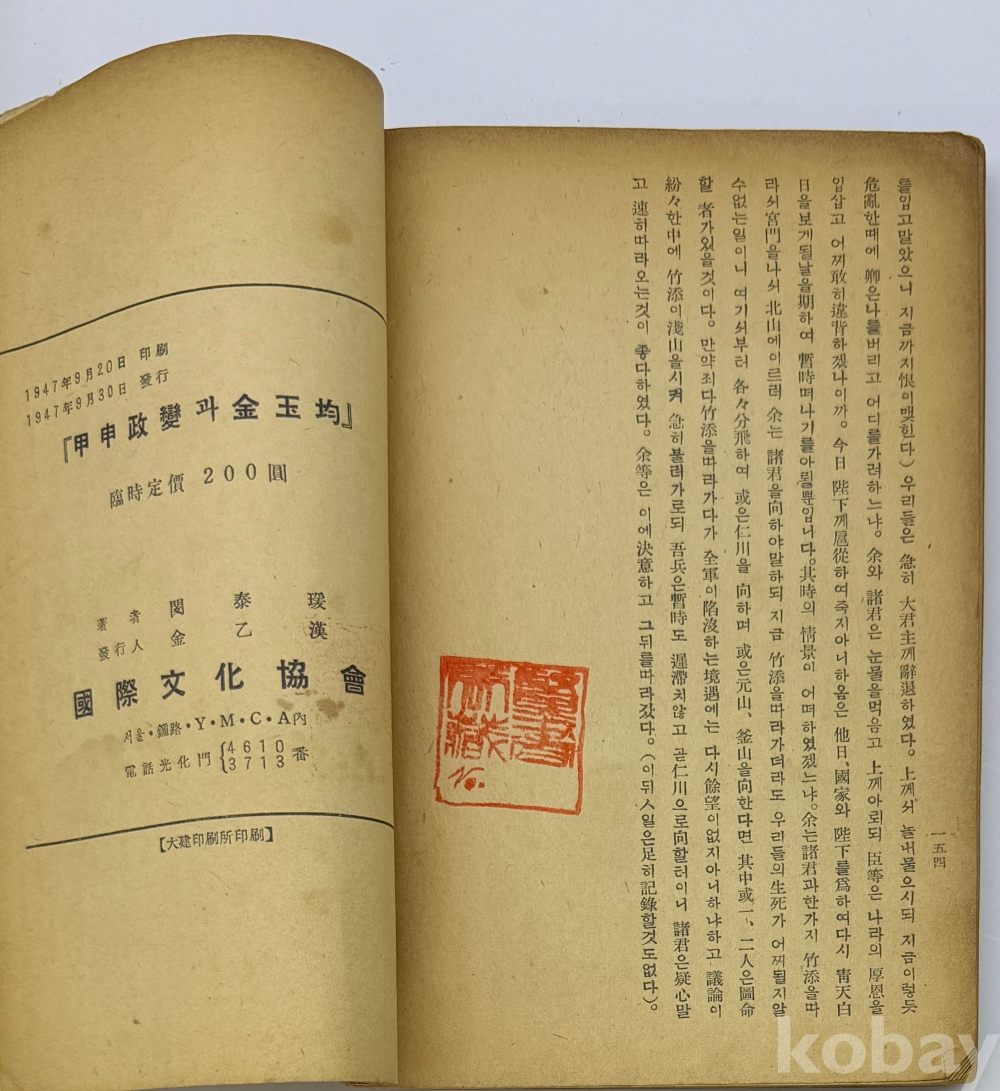 1947年9月20日 印刷
1947年9月30日 發行
『甲申政變과金玉均』
臨時定價 200圓
著者 閔泰瑗
發行人 金乙漢
國際文化協會
서울·鍾路·Y·M·C·A內
電話光化門{4610 3713番
【大建印刷所印刷】
를입고말았으니 지금까지恨이맺힌다) 우리들은 急히 大君主께辭退하였다. 上께서 놀내물으시되 지금이렇듯
危亂한때에 卿은나를버리고 어디를가려하느냐. 余와 諸君은 눈물을먹음고 上께아뢰되 臣等은 나라의 厚恩을
입삽고 어찌敢히違背하겠나이까. 今日 陛下께扈從하여죽지아니하옴은 他日、國家와 陛下를爲하여다시 靑天白
日을보게될날을期하여 暫時떠나기를아뢸뿐입니다。其時의 情景이 어떠하였겠느냐。余는諸君과한가지 竹添을따
라서宮門을나서 北山에이르러 余는 諸君을向하야말하되 지금 竹添을따라가더라도 우리들의生死가 어찌될지알
수없는일이니 여기서부터 各々分飛하여 或은仁川을 向하며 或은元山、釜山을向한다면 其中或一、二人은圖命
할 者가있을것이다. 만약죄다竹添을따라가다가 全軍이陷沒하는境遇에는 다시餘望이없지아니하냐하고 議論이
紛々한中에 竹添이淺山을시켜 急히불러가로되 吾兵은暫時도 遲滯치않고 곧仁川으로向할터이니 諸君은疑心말
고 速히따라오는것이 좋다하였다. 余等은 이에決意하고 그뒤를따라갔다.(이뒤人일은足히記錄할것도없다).
一五四
kobay